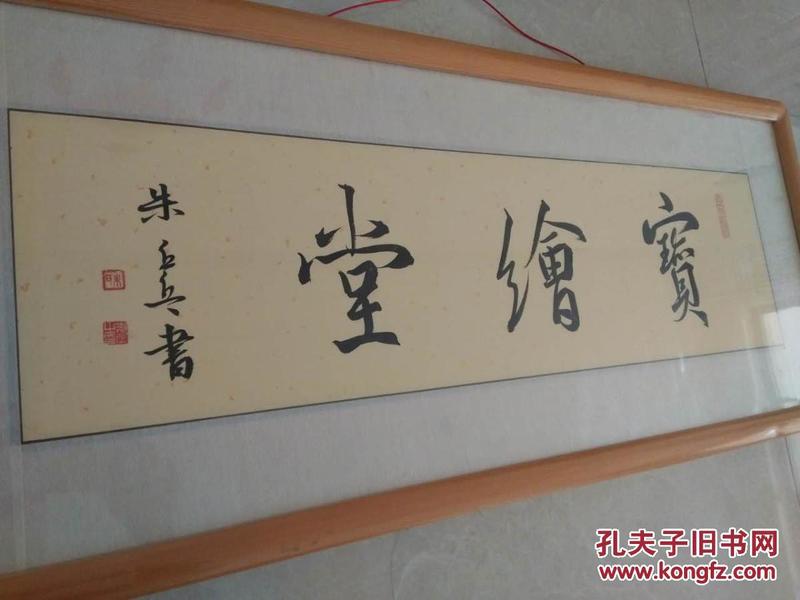 寶繪堂
朱丘兵書
孔夫子旧书网
www.kongfz.com